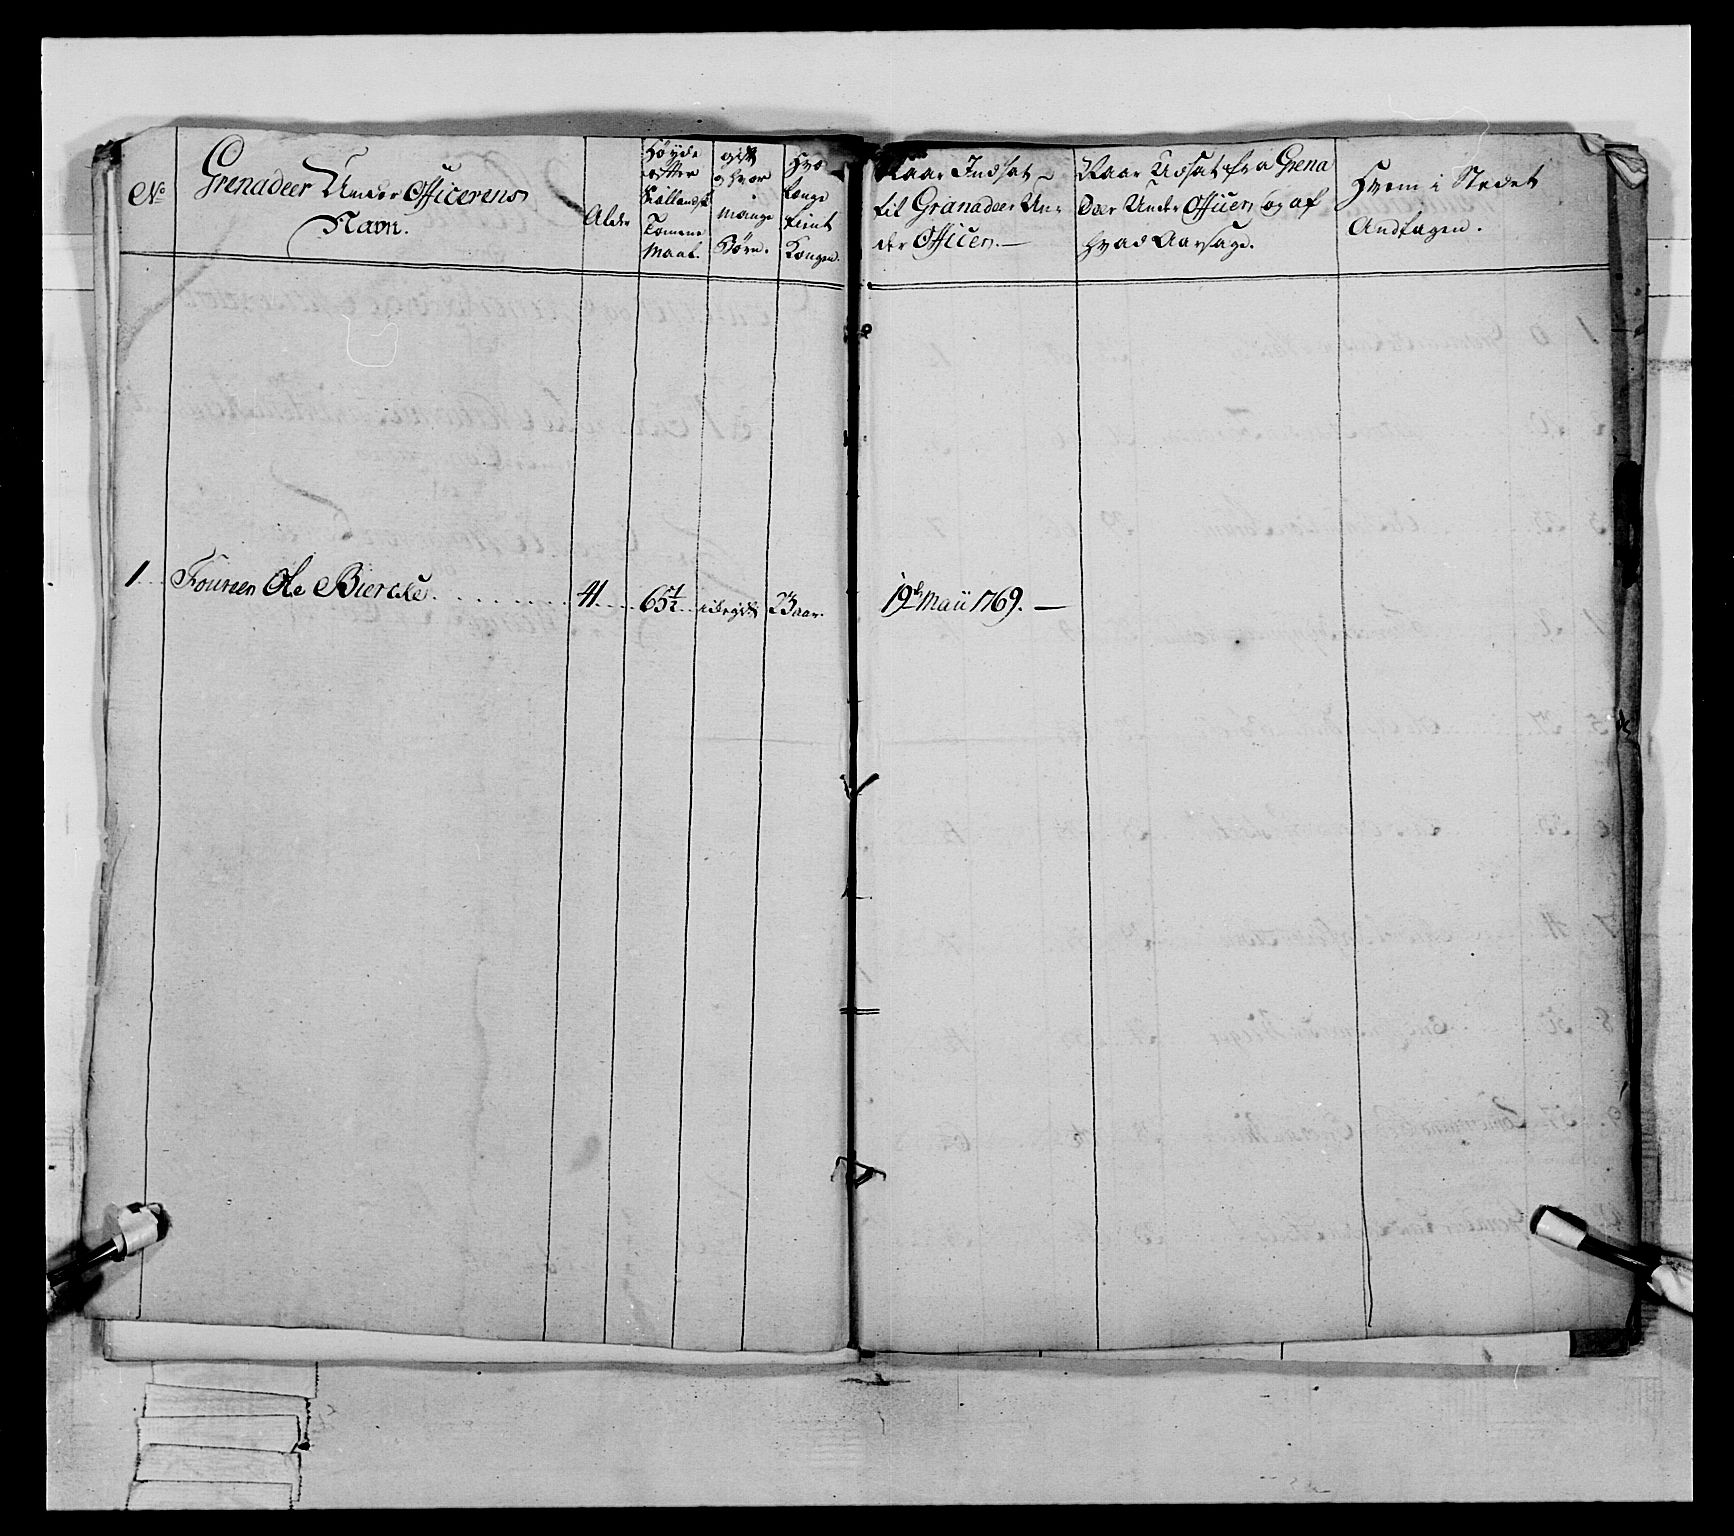 No
Grenadeer Under Officerens
Navn.
Alder
Høyde
efter
Siællandsk
Tomme
Maal.
gift
og hvor
mange
Børn.
Hvor
længe
tient
Kongen.
Naar Indsat
til Granadeer Un-
der Officer.—
Naar Udsat fra Grena
deer Under Officer, og af
hvad Aarsage.
Hvem i Stedet
Andtagen.
1 Foureer Ole Biercke. 41 65½ 23 aar. 19de Maii 1769.—